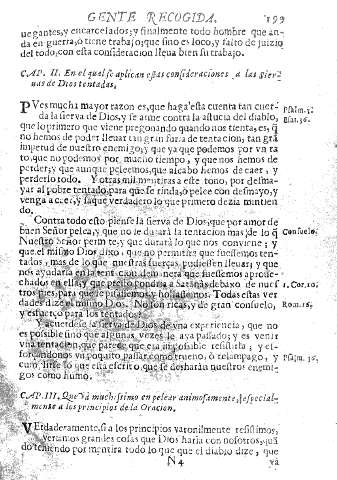 GENTE RECOGIDA. 199
uegantes, y encarcelados; y finalmente todo hombre que an-
da en guerra, ò tiene trabajo; que sino es loco, y falto de juizio
del todo, con esta consideracion lleua bien su trabajo.
CAP. II. En el qual se aplican estas consideraciones a las sier-
uas de Dios tentadas.
PVes mucha mayor razon es, que haga esta cuenta tan cuer-
da la sierva de Dios, y se arme contra la astucia del diablo,
que lo primero que viene pregonando quando nos tienta, es, q̃
no hemos de poder lleuar tan gran furia de tentacion, tan grã
impetud de nuestro enemigo, y que ya que podemos por vn ra
to, que no podemos por mucho tiempo, y que nos hemos de
perder; y que aunque peleemos, que al cabo hemos de caer, y
perderlo todo. Y otras mil mentiras a este tono, por desma-
yar al pobre tentado, para que se rinda, ò pelee con desmayo, y
venga a caer, y saque verdadero lo que primero dezia mintien
do.
Contra todo esto piense la sierva de Dios, que por amor de
buen Señor pelea, y que no le durarà la tentacion mas de lo q̃
Nuestro Señor permite, y que durarà lo que nos conviene; y
que el mismo Dios dixo, que no permitira que fuessemos ten-
tados, mas de lo que nuestras fuerças pudiessen lleuar; y que
nos ayudaria en la tentacion de manera que fuessemos aproue-
chados en ella, y que presto pondria a Satanàs debaxo de nues
tros pies, para que le pisassemos, y hollassemos. Todas estas ver
dades dize el mismo Dios. No son ricas, y de gran consuelo,
y esfuerço para los tentados?
Y acuerdese la sierva de Dios de vna experiencia, que no
es possible sino que algunas vezes le aya passado; y es venir
vna tentacion, que parece que era impossible resistirla; y es-
forçandonos vn poquito passar como trueno, ò relampago, y
cumplirse lo que està escrito, que se desharàn nuestros enemi-
gos como humo.
Consuelo.
1. Cor. 10.
Rom. 16.
CAP. III. Que và muchissimo en pelear animosamente, y especial-
mente a los principios de la Oracion.
VErdaderamente, si a los principios varonilmente resistimos,
veriamos grandes cosas que Dios haria con nosotros, quã
do teniendo por mentira todo lo que el diablo dize, que
N 4 yà